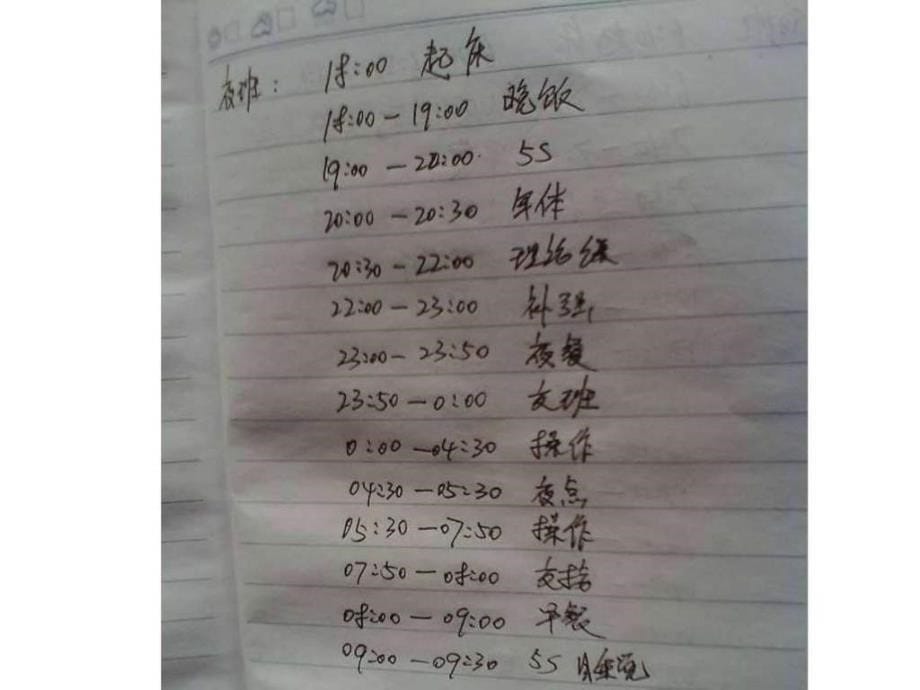 夜班： 18:00 起床
18:00 — 19:00 晚饭
19:00 — 20:00 5S
20:00 — 20:30 军体
20:30 — 22:00 理论课
22:00 — 23:00 补强
23:00 — 23:50 夜餐
23:50 — 0:00 交班
0:00 — 04:30 操作
04:30 — 05:30 夜点
05:30 — 07:50 操作
07:50 — 08:00 交接
08:00 — 09:00 早餐
09:00 — 09:30 5S 睡觉